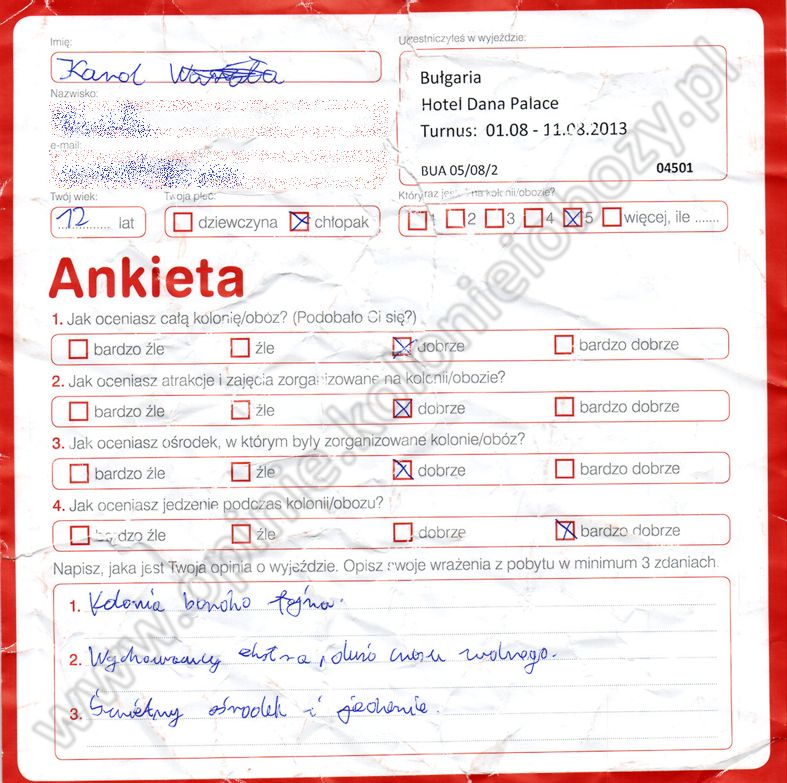 Imię:
Uczestniczyłeś w wyjeździe:
Karol
Nazwisko:
e-mail:
Bułgaria
Hotel Dana Palace
Turnus: 01.08 - 11.08.2013
BUA 05/08/2 04501
Twój wiek: Twoja płeć: Który raz jesteś na kolonii/obozie?
12 lat dziewczyna chłopak 1 2 3 4 5 więcej, ile .......
Ankieta
1. Jak oceniasz całą kolonię/obóz? (Podobało Ci się?)
bardzo źle źle dobrze bardzo dobrze
2. Jak oceniasz atrakcje i zajęcia zorganizowane na kolonii/obozie?
bardzo źle źle dobrze bardzo dobrze
3. Jak oceniasz ośrodek, w którym były zorganizowane kolonie/obóz?
bardzo źle źle dobrze bardzo dobrze
4. Jak oceniasz jedzenie podczas kolonii/obozu?
bardzo źle źle dobrze bardzo dobrze
Napisz, jaka jest Twoja opinia o wyjeździe. Opisz swoje wrażenia z pobytu w minimum 3 zdaniach.
1. Kolonia bardzo fajna.
2. Wychowawcy ekstra, dużo czasu wolnego.
3. Świetny ośrodek i jedzenie.
www.opinie.kolonieiobozy.pl